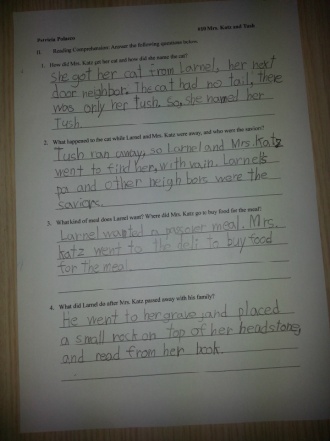 Patricia Polacco
#10 Mrs. Katz and Tush
II. Reading Comprehension: Answer the following questions below.
1. How did Mrs. Katz get her cat and how did she name the cat?
She got her cat from Larnel, her next
door neighbor. The cat had no tail; there
was only her tush. So, she named her
Tush.
2. What happened to the cat while Larnel and Mrs. Katz were away, and who were the savior?
Tush ran away, so Larnel and Mrs. Katz
went to find her, with vain. Larnel's
pa and other neighbors were the
savior.
3. What kind of meal does Larnel want? Where did Mrs. Katz go to buy food for the meal?
Larnel wanted a passover meal. Mrs.
Katz went to the deli to buy food
for the meal.
4. What did Larnel do after Mrs. Katz passed away with his family?
He went to her grave, and placed
a small rock on top of her headstone,
and read from her book.